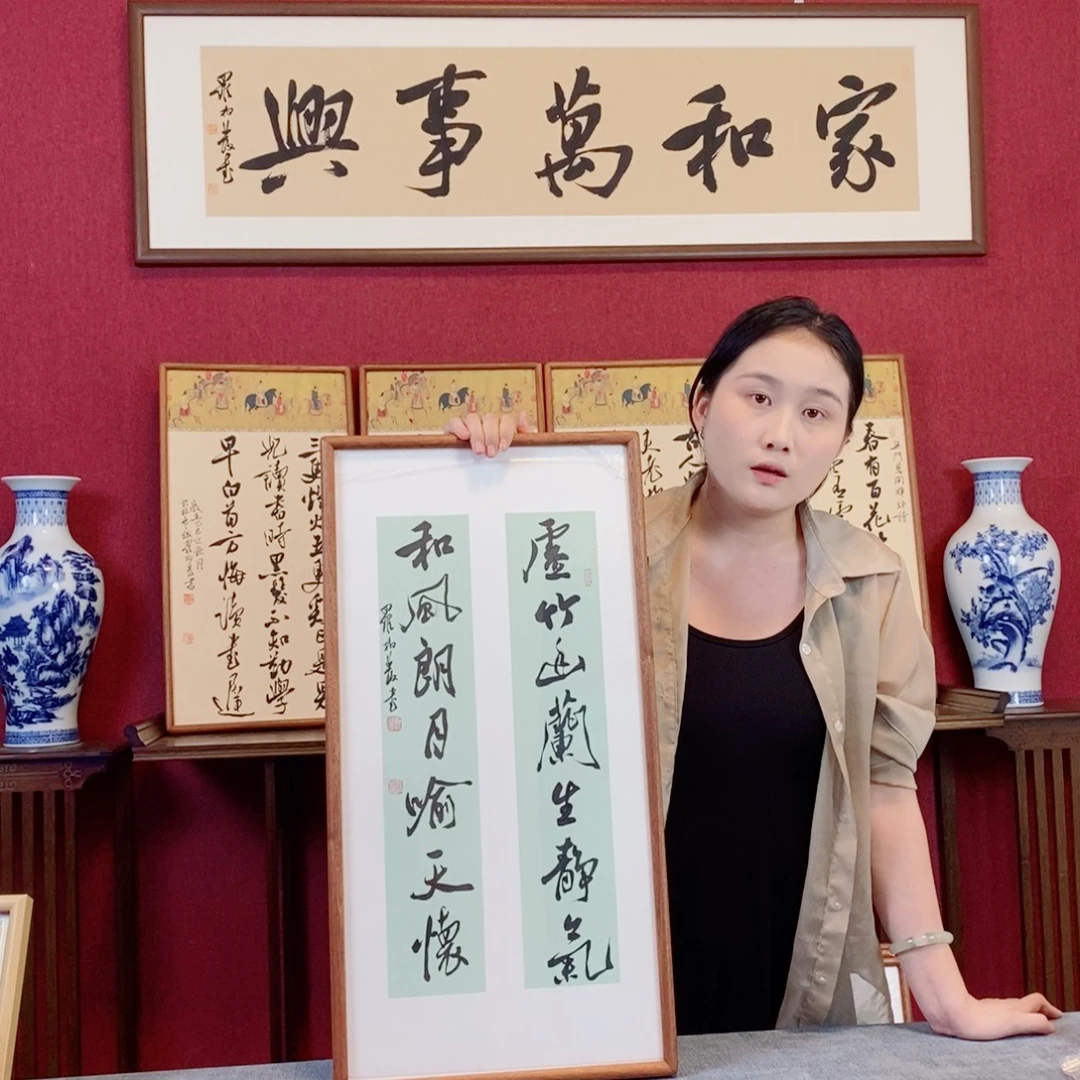 家和萬事興
三更灯火五更雞正是男
兒讀書時黑髮不知勤學
早白首方悔讀書遲
春有百花
虛竹幽蘭生靜氣
和風朗月喻天懷